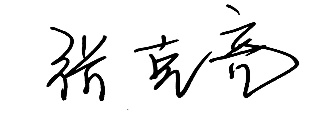 张克亮